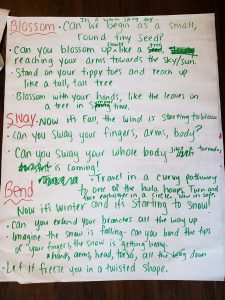 It's a warm spring day!
Blossom - Can we begin as a small,
round tiny seed?
• Can you blossom up, slowly like a tree
reaching your arms towards the sky/sun.
• Stand on your tippy toes and reach up
like a tall, tall tree
• Blossom with your hands, like the leaves on
a tree in time.
Sway Now its Fall, the wind is starting to blow
• Can you sway your fingers, arms, body?
• Can you Sway your whole body like a tornado,
is coming!
Travel in a curvy pathway
to one of the hula hoops. Turn and
face eachother in a circle. Now in
Bend
Now its winter and its starting to Snow!
• Can you extend your branches all the way up
• Imagine the snow is falling - can you bend the tips
of your fingers, the snow is getting heavy
• hands, arms, head, torso, all the way down
• Let it freeze you in a twisted shape.